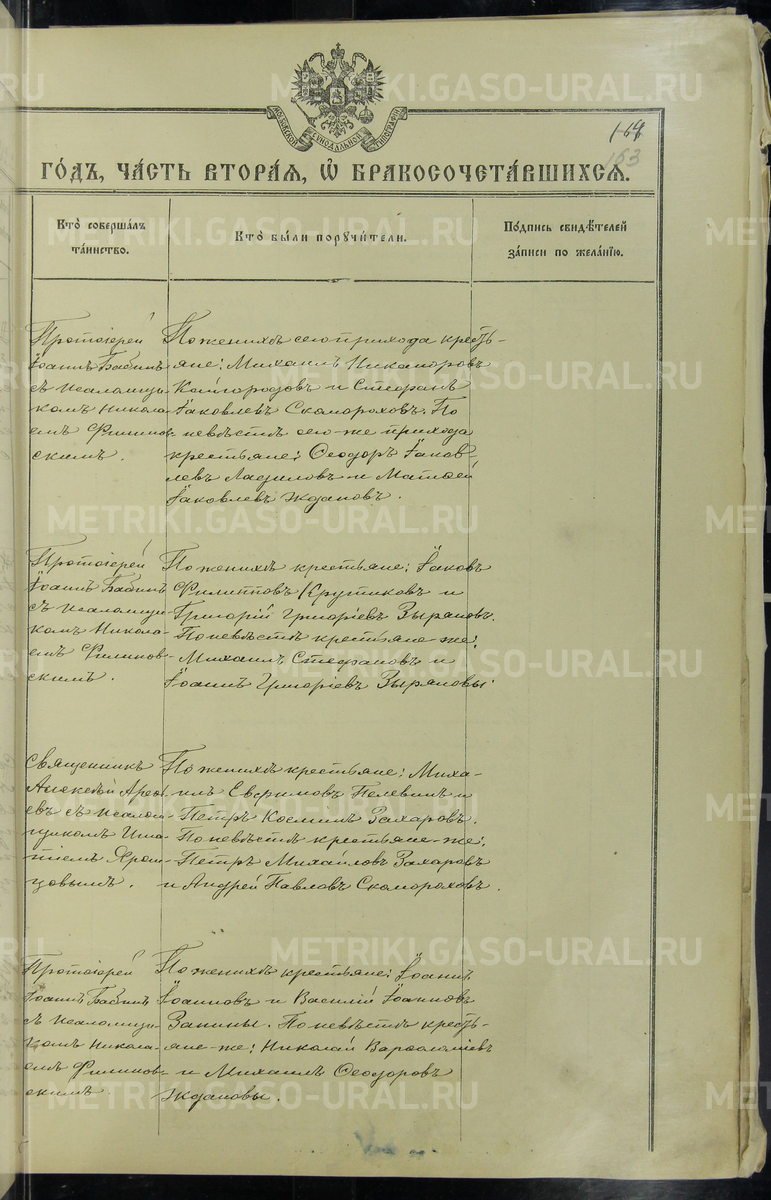 METRIKI.GASO-URAL.RU
МОСКОВСКОЙ СѴНОДАЛЬНОЙ ТИПОГРАФІИ
164
163
ГО́ДЪ, ЧА́СТЬ ВТОРА́Я, Ѡ҆ БРАКОСОЧЕТА́ВШИХСЯ.
Кто̀ соверша́лъ
та́инство.
Кто̀ бы́ли поручи́тели.
По́дпись свидѣ́телей
за́писи по жела́нїю.
Протоіерей
Іоаннъ Бабинъ
съ псаломщи-
комъ Никола-
емъ Филипов-
скимъ.
По женихѣ сего прихода кресть-
яне: Михаилъ Никаноровъ
Кайгородовъ и Стефанъ
Іаковлевъ Скомороховъ. По
невѣстѣ сего-же прихода
крестьяне: Ѳеодоръ Іаков-
левъ Ладиловъ и Матѳей
Іаковлевъ Ждановъ.
Протоіерей
Іоаннъ Бабинъ
съ псаломщи-
комъ Никола-
емъ Филипов-
скимъ.
По женихѣ крестьяне: Іаковъ
Филипповъ Крутиковъ и
Григорій Григоріевъ Зыряновъ.
По невѣстѣ крестьяне-же:
Михаилъ Стефановъ и
Іоаннъ Григоріевъ Зыряновы.
Священникъ
Алексѣй
евъ съ псалом-
щикомъ Игна-
тіемъ
цовымъ.
По женихѣ крестьяне: Миха-
илъ Евфимовъ Пелевинъ и
Петръ Косминъ Захаровъ.
По невѣстѣ крестьяне-же:
Петръ Михайловъ Захаровъ
и Андрей Павловъ Скомороховъ.
Протоіерей
Іоаннъ Бабинъ
съ псаломщи-
комъ Никола-
емъ Филипов-
скимъ.
По женихѣ крестьяне: Іоаннъ
Іоанновъ и Василій Іоанновъ
Занины. По невѣстѣ кресть-
яне-же: Николай Варѳоломіевъ
и Михаилъ Ѳеодоровъ
Ждановы.